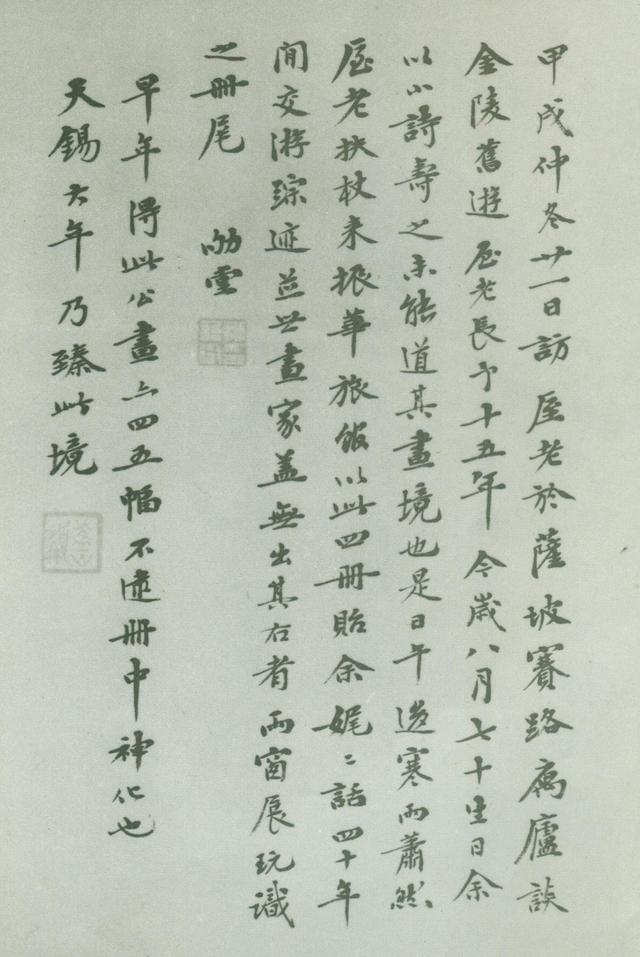 甲戌仲冬廿一日訪厔老於薩坡賽路寓廬談
金陵舊遊厔老長予十五年今歲八月七十生日余
以小詩壽之未能道其畫境也是日午邀寒雨蕭然
厔老扶杖来振華旅飯以此四冊貽余娓〻話四十年
间交游踪迹並世畫家蓋無出其右者雨窗展玩識
之冊尾
早年得此公畫亦四五幅不逮冊中神化也
天錫六年乃臻此境